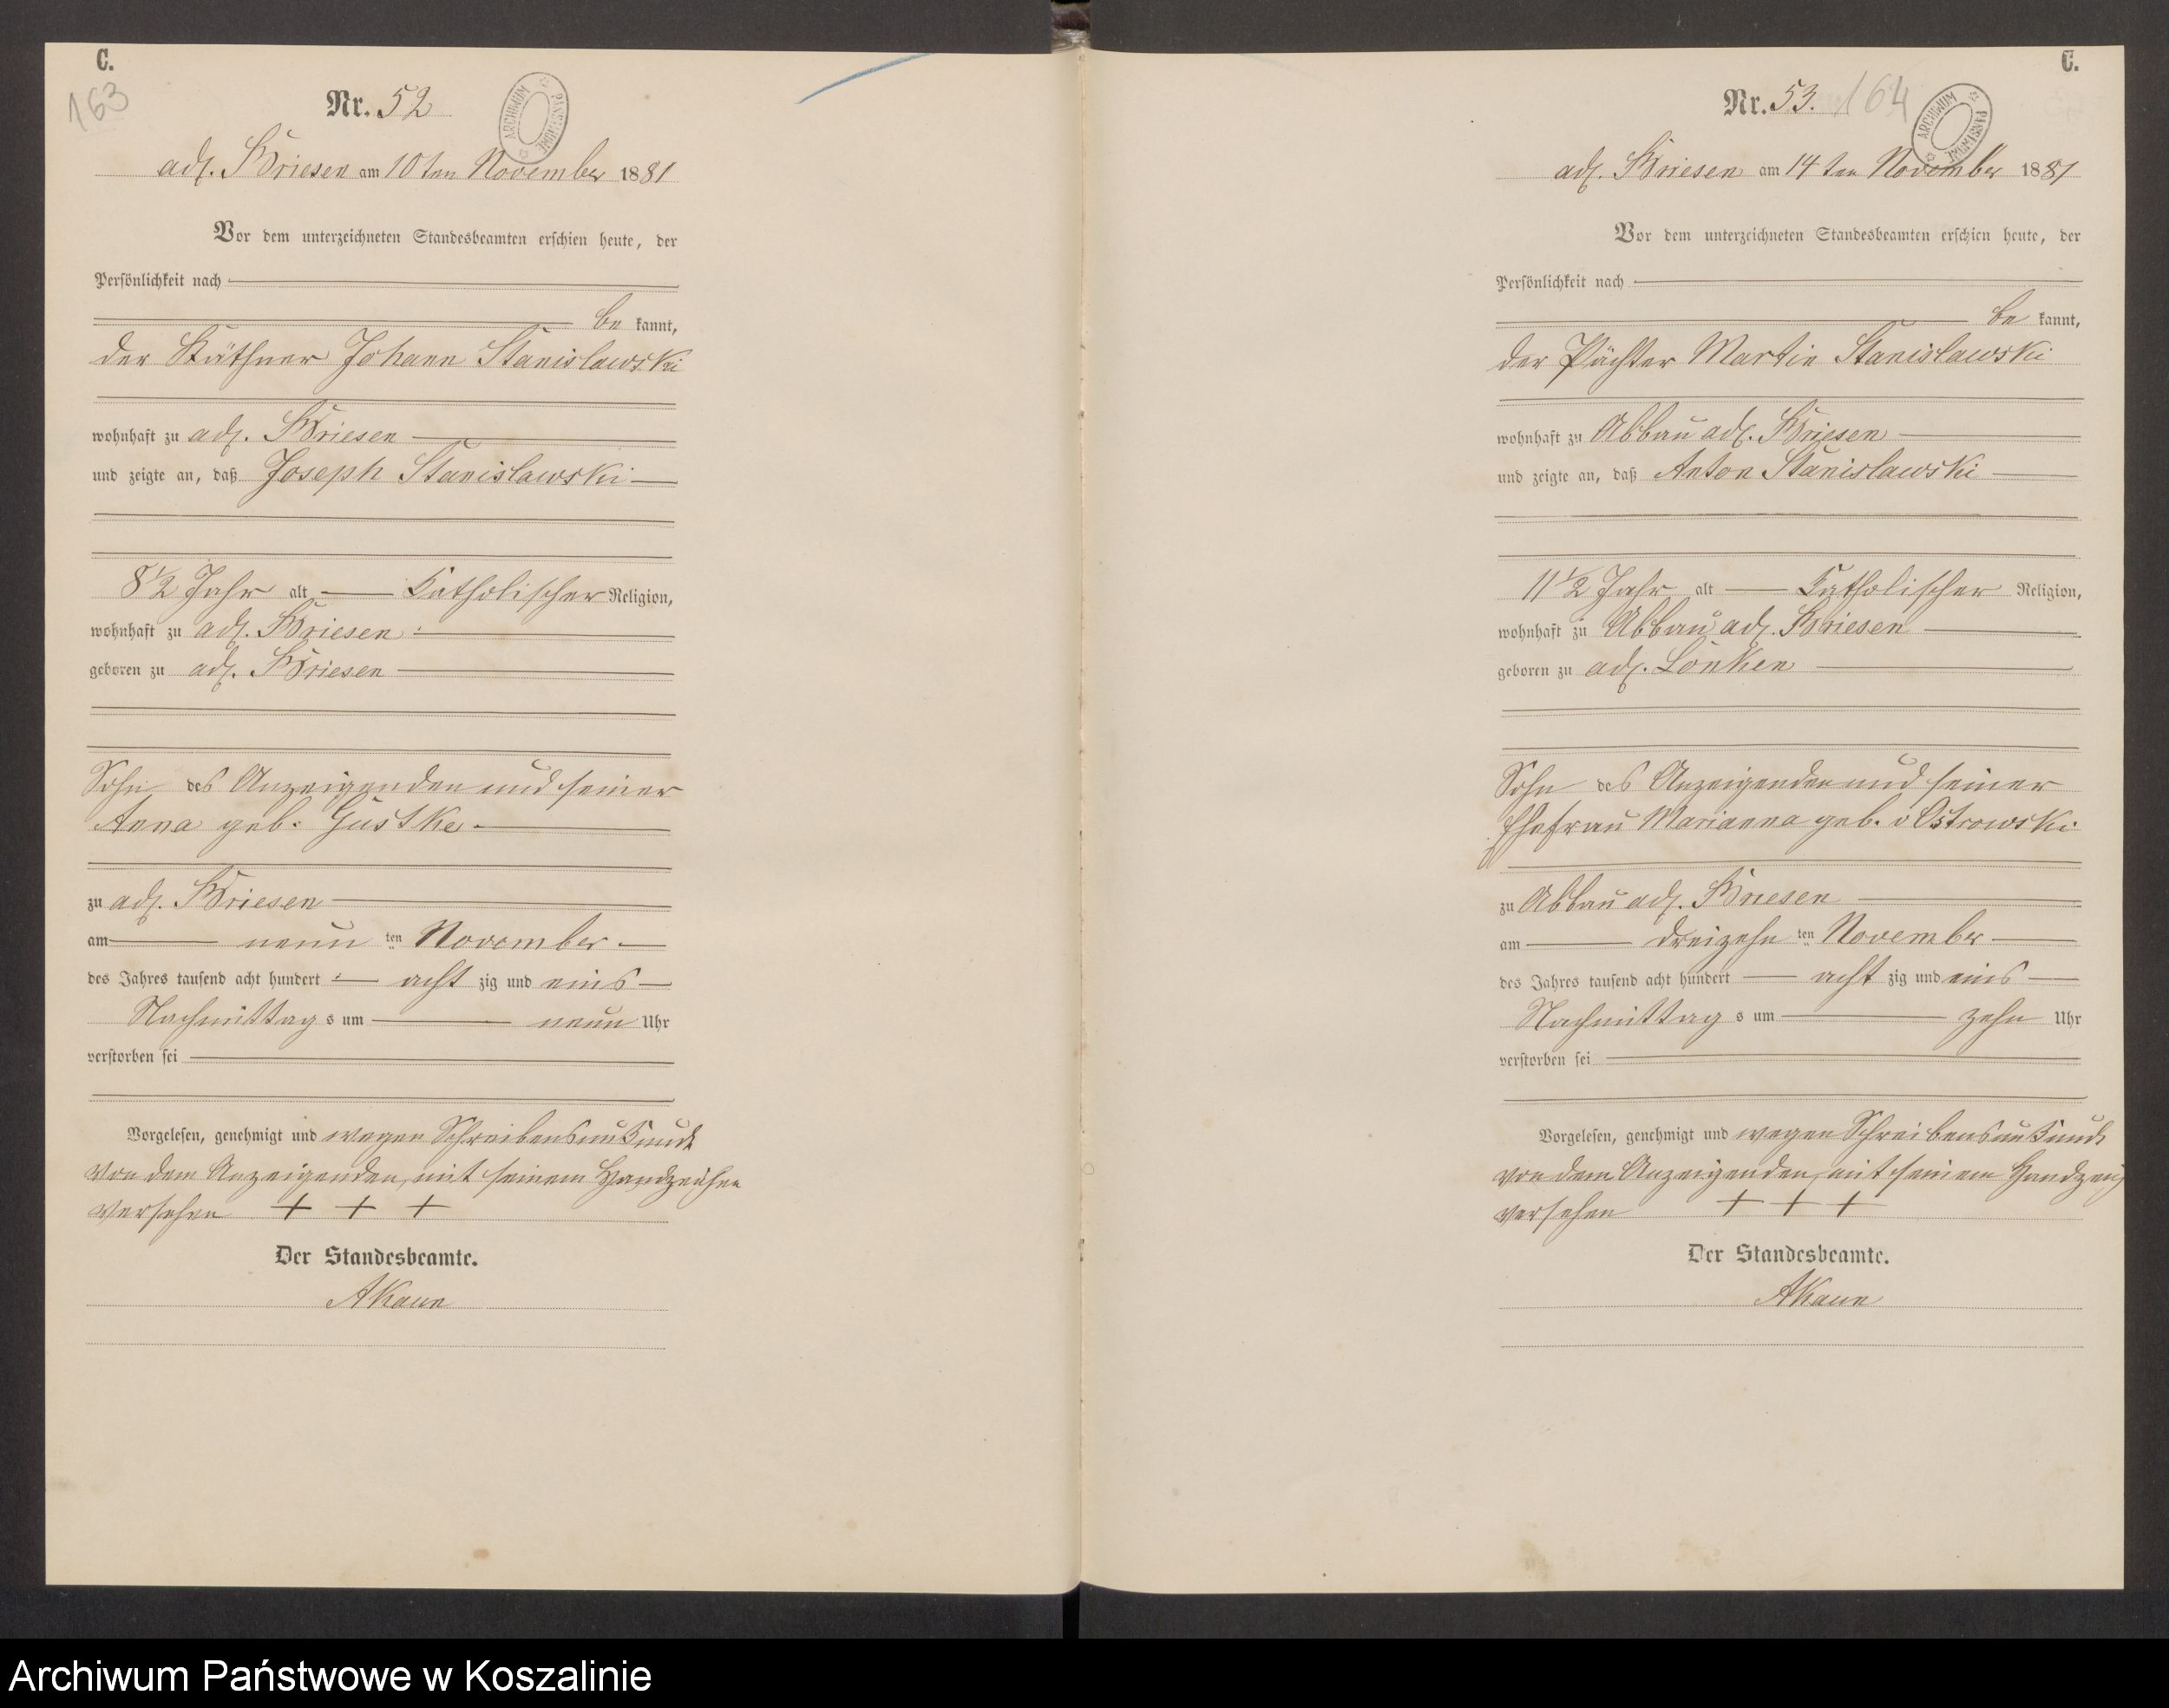 C.
163
Nr. 52
ARCHIWUM PAŃSTWOWE
adl. Briesen am 10ten November 1881
Vor dem unterzeichneten Standesbeamten erschien heute, der
Persönlichkeit nach
be kannt,
der Käthner Johann Stanislawski
wohnhaft zu adl. Briesen
und zeigte an, daß Joseph Stanislawski
8 1/2 Jahr alt Katholischer Religion,
wohnhaft zu adl. Briesen
geboren zu adl. Briesen
Sohn des Anzeigenden und seiner
Anna geb. Gustke
zu adl. Briesen
am neun ten November
des Jahres tausend acht hundert acht zig und eins
Nachmittag s um neun Uhr
verstorben sei
Vorgelesen, genehmigt und wegen Schreibensunkunde
von dem Anzeigenden, mit seinem Handzeichen
versehen + + +
Der Standesbeamte.
AKaun
C.
Nr. 53. 164
ARCHIWUM PAŃSTWOWE
adl. Briesen am 14ten November 1881
Vor dem unterzeichneten Standesbeamten erschien heute, der
Persönlichkeit nach
be kannt,
der Pächter Martin Stanislawski
wohnhaft zu Abbau adl. Briesen
und zeigte an, daß Anton Stanislawski
11 1/2 Jahr alt Katholischer Religion,
wohnhaft zu Abbau adl. Briesen
geboren zu adl. Lonken
Sohn des Anzeigenden und seiner
Ehefrau Marianna geb. v Ostrowski
zu Abbau adl. Briesen
am dreizehn ten November
des Jahres tausend acht hundert acht zig und eins
Nachmittag s um zehn Uhr
verstorben sei
Vorgelesen, genehmigt und wegen Schreibensunkunde
von dem Anzeigenden, mit seinem Handzeich
versehen + + +
Der Standesbeamte.
AKaun
Archiwum Państwowe w Koszalinie